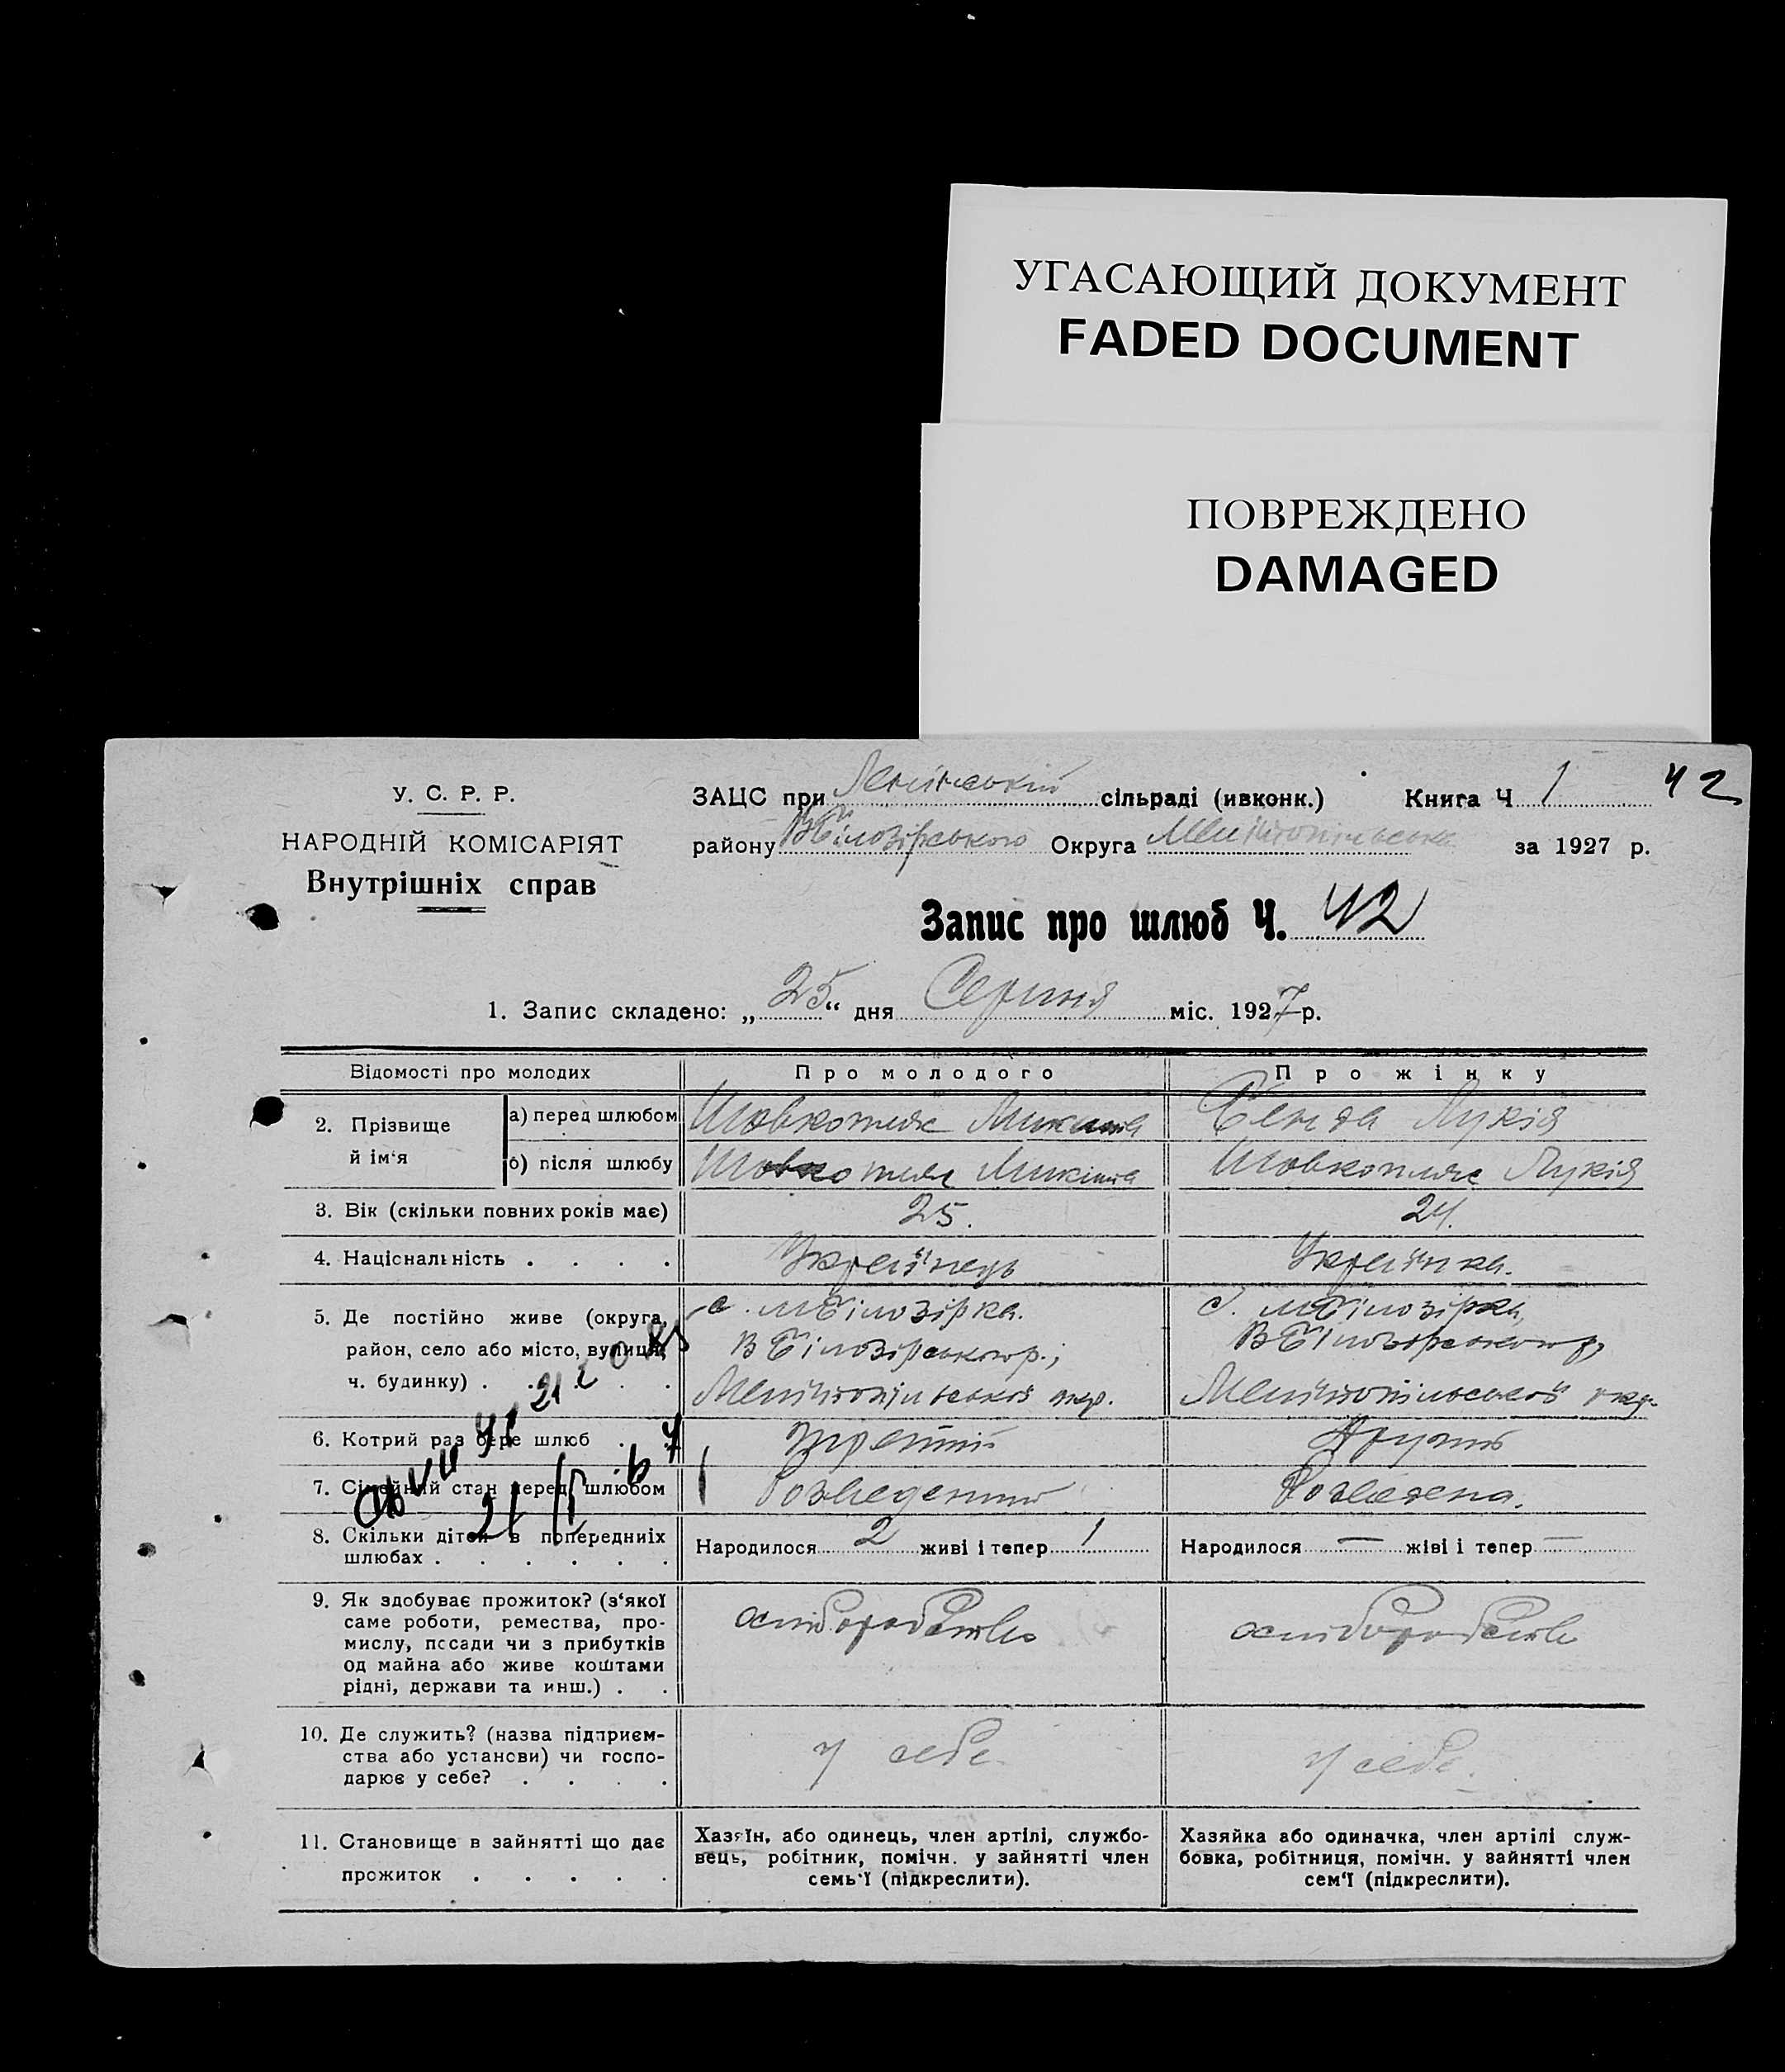 УГАСАЮЩИЙ ДОКУМЕНТ
FADED DOCUMENT
ПОВРЕЖДЕНО
DAMAGED
У. С. Р. Р.
НАРОДНІЙ КОМІСАРІЯТ
Внутрішніх справ
ЗАЦС при Ленінській сільраді (ивконк.) Книга Ч 1 42
району ВБілозірського Округа Мелітопільська за 1927 р.
Запис про шлюб Ч. 42
1. Запис складено: „25“ дня Серпня міс. 1927 р.
Відомості про молодих Про молодого Про жінку
2. Прізвище й ім‘я
а) перед шлюбом Шовкопляс Микита Лукія
б) після шлюбу Шовкопляс Микита Шовкопляс Лукія
3. Вік (скільки повних років має) 25. 24.
4. Національність . . . . Українець Українка.
5. Де постійно живе (округа, с. МБілозірка. с. МБілозірка,
район, село або місто, вулиця, ВБілозірського р.; ВБілозірського р,
ч. будинку) . . . . . Мелітопільської окр. Мелітопільської окр.
6. Котрий раз бере шлюб . . третій Другий
7. Сімейний стан перед шлюбом Розведений Розведена.
8. Скільки дітей в попередниіх Народилося 2 живі і тепер 1 Народилося — жіві і тепер —
шлюбах . . . . . .
9. Як здобуває прожиток? (з‘якої
саме роботи, ремества, про-
мислу, посади чи з прибутків
од майна або живе коштами
рідні, держави та инш.) . .
10. Де служить? (назва підприєм-
ства або установи) чи госпо- у себе. у себе.
дарює у себе? . . . .
11. Становище в зайнятті що дає
прожиток . . . . .
Хазяїн, або одинець, член артілі, службо-
вець, робітник, помічн. у зайнятті член
семь‘ї (підкреслити).
Хазяйка або одиначка, член артілі служ-
бовка, робітниця, помічн. у зайнятті член
сем‘ї (підкреслити).